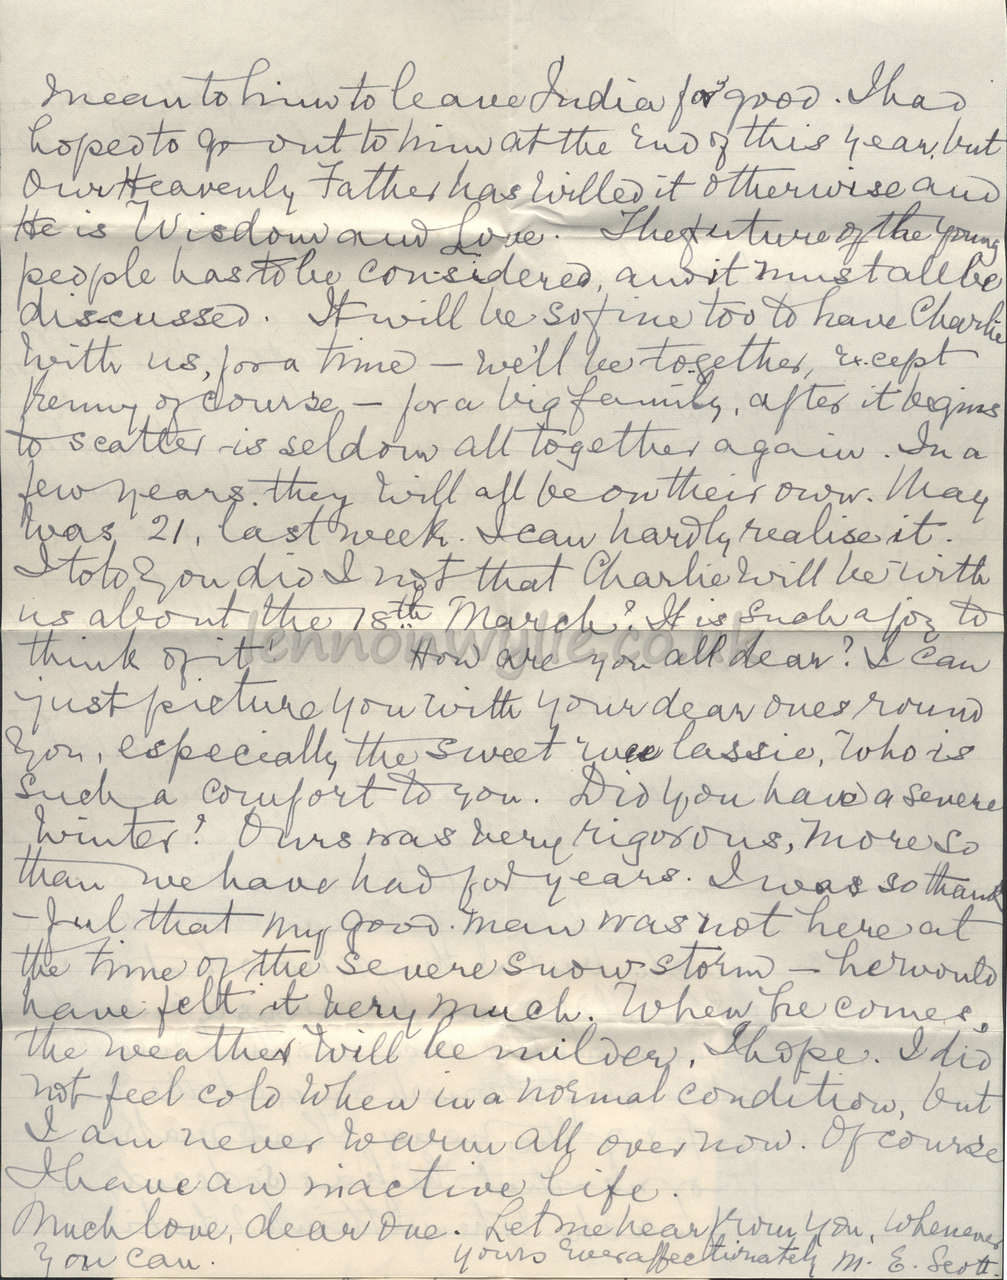 mean to him to leave India for good. I had
hoped to go out to him at the end of this year, but
Our Heavenly Father has willed it otherwise and
He is Wisdom and Love. The future of the young
people has to be considered, and it must all be
discussed. It will be so fine too to have Charlie
with us, for a time – we'll be together, except
of course – for a big family, after it begins
to scatter – is seldom all together again. In a
few years they will all be on their own. May
was 21, last week. I can hardly realise it.
I told you did I not that Charlie will be with
us about the 18th March? It is such a joy to
think of it! How are you all dear? I can
just picture you with your dear ones round
you, especially the sweet wee lassie, who is
such a comfort to you. Did you have a severe
Winter? Ours was very rigorous, more so
than we have had for years. I was so thank
-ful that my good man was not here at
the time of the severe snow storm – he would
have felt it very much. When he comes,
the weather will be milder, I hope. I did
not feel cold when in a normal condition, but
I am never warm all over now. Of course
I have an inactive life.
Much love, dear one. Let me hear from you, whenever
you can. Yours ever affectionately M. E. Scott.
lennonwylie.co.uk